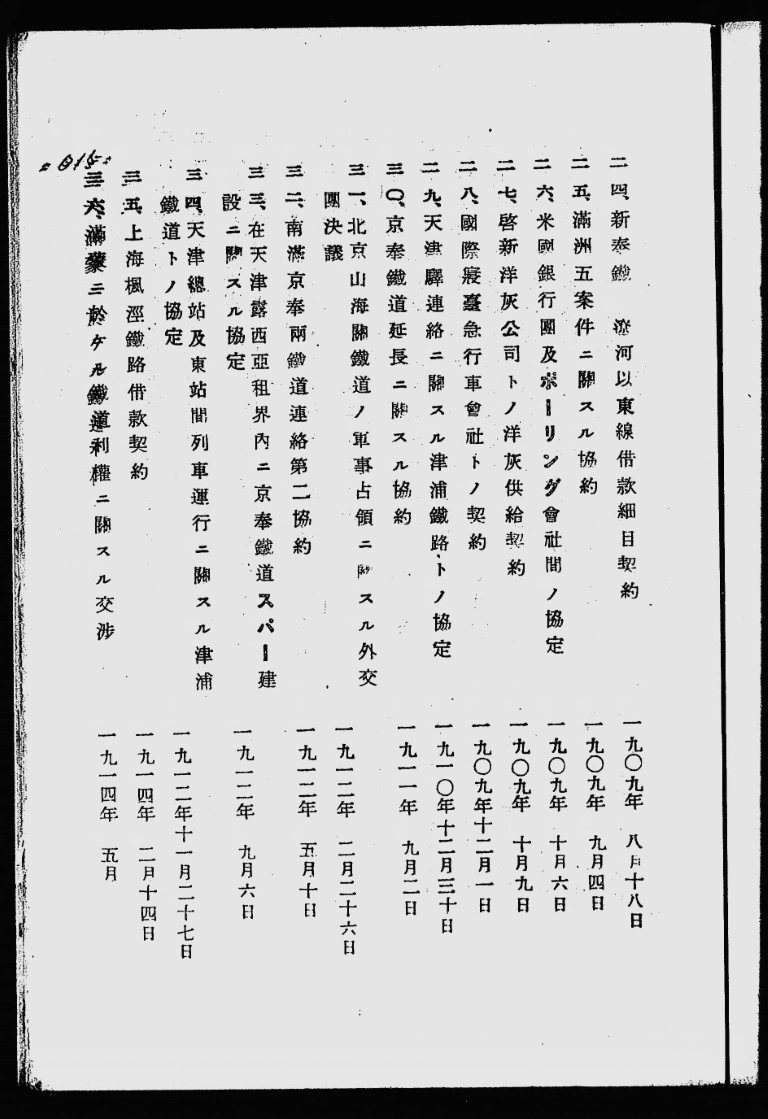 二四、新奉鐵 遼河以東線借款細目契約 一九〇九年 八月十八日
二五、滿洲五案件ニ關スル協約 一九〇九年 九月四日
二六、米國銀行團及ポーリング會社間ノ協定 一九〇九年 十月六日
二七、啓新洋灰公司トノ洋灰供給契約 一九〇九年 十月九日
二八、國際寢臺急行車會社トノ契約 一九〇九年十二月一日
二九、天津驛連絡ニ關スル津浦鐵路トノ協定 一九一〇年十二月三十日
三〇、京奉鐵道延長ニ關スル協約 一九一一年 九月二日
三一、北京山海關鐵道ノ軍事占領ニ關スル外交
團決議 一九一二年 二月二十六日
三二、南滿京奉兩鐵道連絡第二協約 一九一二年 五月十日
三三、在天津露西亞租界內ニ京奉鐵道スパー建
設ニ關スル協定 一九一二年 九月六日
三四、天津總站及東站間列車運行ニ關スル津浦
鐵道トノ協定 一九一二年十一月二十七日
三五、上海楓涇鐵路借款契約 一九一四年 二月十四日
三六、滿蒙ニ於ケル鐵道利權ニ關スル交涉 一九一四年 五月